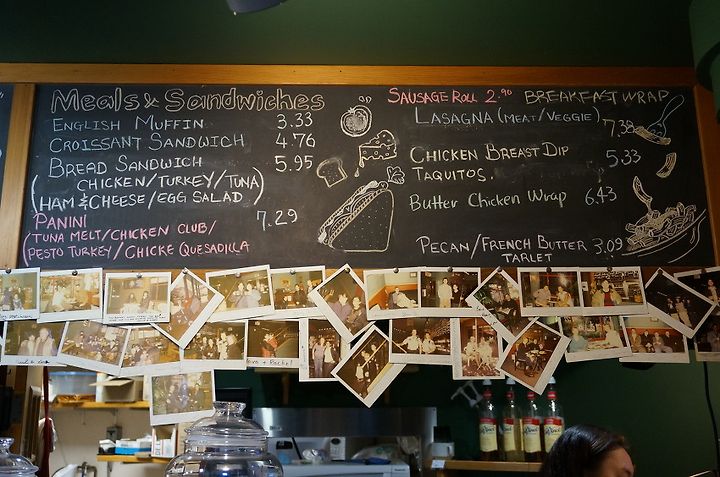 Meals & Sandwiches
English Muffin 3.33
Croissant Sandwich 4.76
Bread Sandwich 5.95
(Chicken/Turkey/Tuna)
(Ham & Cheese/Egg Salad)
Panini 7.29
(Tuna Melt/Chicken Club/
Pesto Turkey/Chicke Quesadilla
Sausage Roll 2.90 Breakfast Wrap
Lasagna (Meat/Veggie) 7.38
Chicken Breast Dip 5.33
Taquitos.
Butter Chicken Wrap 6.43
Pecan/French Butter 3.09
Tarlet